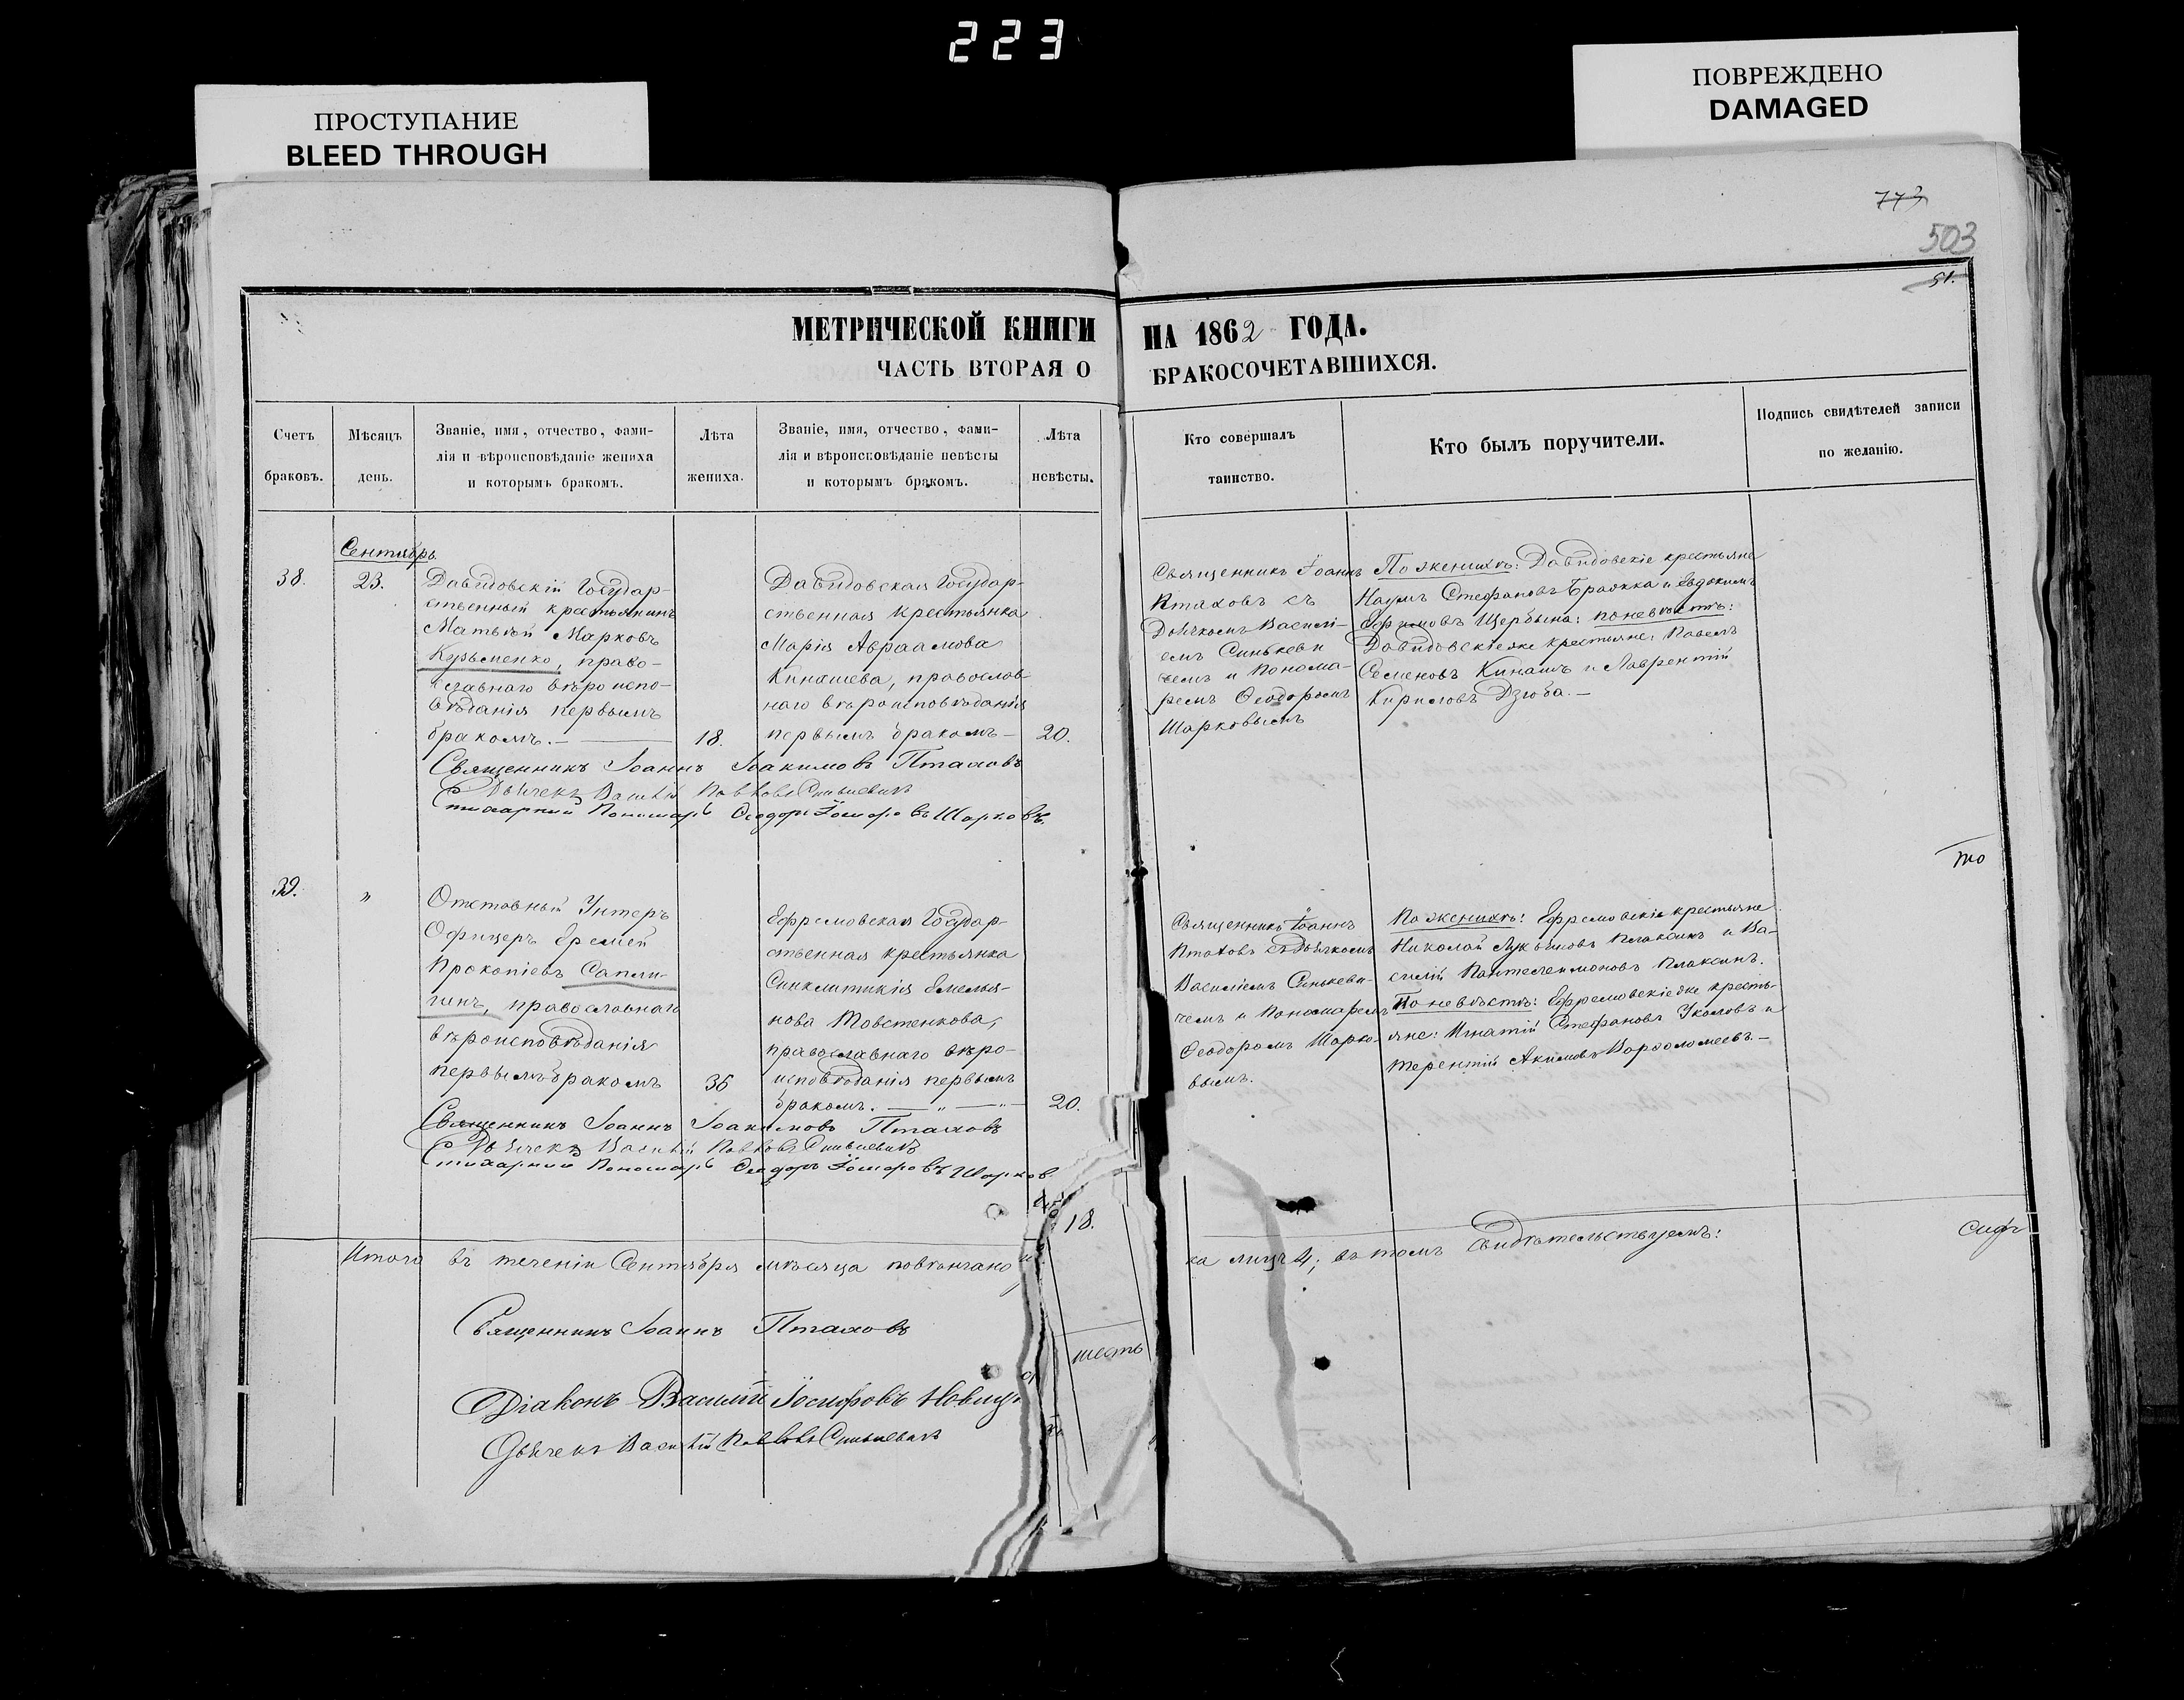 223
ПРОСТУПАНИЕ
BLEED THROUGH
ПОВРЕЖДЕНО
DAMAGED
773
503
51.
МЕТРИЧЕСКОЙ КНИГИ НА 1862 ГОДА.
ЧАСТЬ ВТОРАЯ О БРАКОСОЧЕТАВШИХСЯ.
Счетъ
браковъ.
Мѣсяцъ
день.
Званіе, имя, отчество, фами-
лія и вѣроисповѣданіе жениха
и которымъ бракомъ.
Лѣта
жениха.
Званіе, имя, отчество, фами-
лія и вѣроисповѣданіе невѣсты
и которымъ бракомъ.
Лѣта
невѣсты.
Кто совершалъ
таинство.
Кто былъ поручители.
Подпись свидѣтелей записи
по желанію.
Сентябрь
38.
23.
Давыдовскій Государ-
ственный крестьянинъ
Матвѣй Марковъ
Кузьменко, право-
славнаго вѣроиспо-
вѣданія первымъ
бракомъ.
18.
Давыдовская Государ-
ственная крестьянка
Марія Авраамова
Кинашева, православ-
наго вѣроисповѣданія
первымъ бракомъ
20.
Священникъ Іоаннъ
Птаховъ съ
Дьячкомъ Василі-
емъ Синькеви
чемъ и Понома-
ремъ Ѳеодоромъ
Шарковымъ
По женихѣ: Давыдовскіе крестьяне
Наумъ Стефановъ Бражка и Евдокимъ
Ефимовъ Щербына: по невѣстѣ:
Давыдовскіе же крестьяне: Павелъ
Семеновъ Кинашъ и Лаврентій
Кириловъ Дзюба.
Священникъ Іоаннъ Іоакимовъ Птаховъ
Дьячекъ Василій Павловъ Синькевичъ
Стихарный Пономарь Ѳеодоръ Шарковъ.
39.
"
Отставный Унтеръ
Офицеръ Еремей
Прокопіевъ Сапли-
гинъ, православнаго
вѣроисповѣданія
первымъ бракомъ
36
Ефремовская Государ-
ственная крестьянка
Синклитикія Емелья-
нова Товстенкова,
православнаго вѣро-
исповѣданія первымъ
бракомъ. — „ —
20.
Священникъ Іоаннъ
Птаховъ съ Дьячкомъ
Василіемъ Синькеви-
чемъ и Пономаремъ
Ѳеодоромъ Шарко-
вымъ.
По женихѣ: Ефремовскіе крестьяне
Николай Лукьяновъ Плаксинъ и Ва-
силій Пантелеимоновъ Плаксинъ.
По невѣстѣ: Ефремовскіе же кресть-
яне: Игнатій Стефановъ Уколовъ и
Терентій Акимовъ Варѳоломеевъ.
Священникъ Іоаннъ Іоакимовъ Птаховъ
Дьячекъ Василій Павловъ Синькевичъ
Стихарный Пономарь Ѳеодоръ Шарков
18.
Итого въ теченіи Сентября мѣсяца повѣнчано
ка лицъ 4; въ томъ свидѣтельствуемъ:
Священникъ Іоаннъ Птаховъ
шесть
Діаконъ Василій Іосифовъ Новиц
Дьячекъ Василій Павловъ Синькевичъ